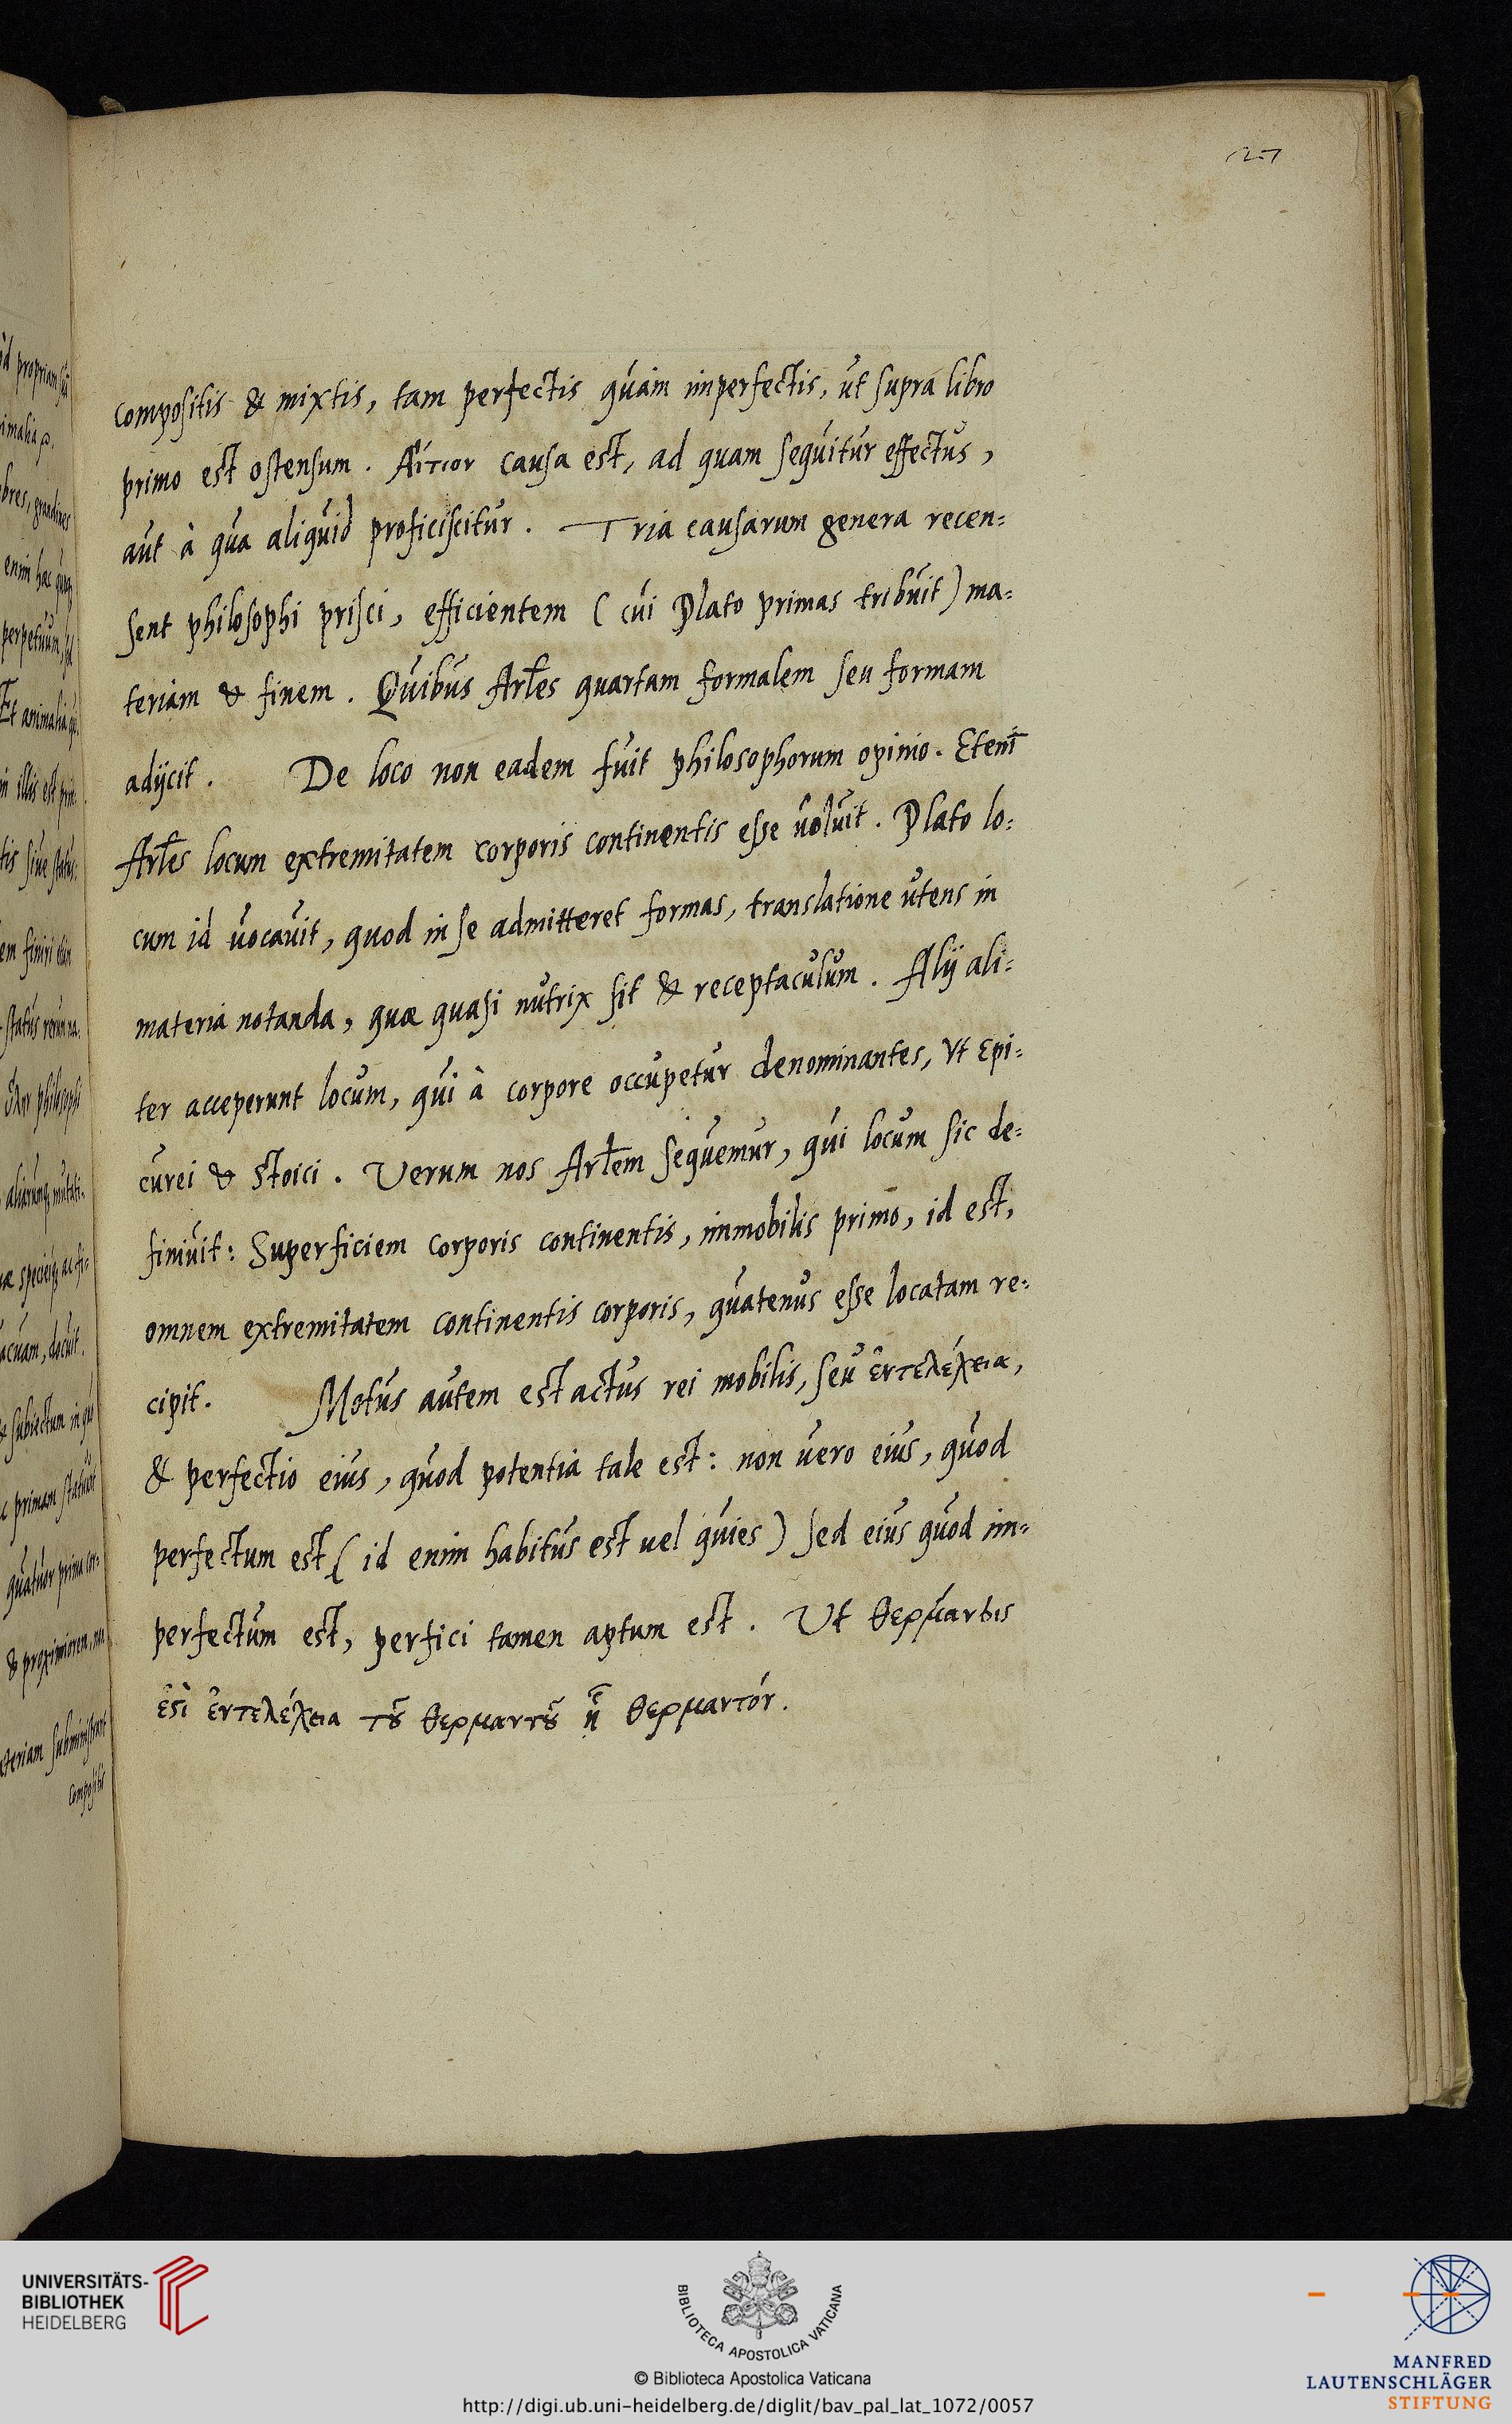 127
compositis & mixtis, tam perfectis quàm imperfectis, ut supra libro
primo est ostensum. Αἴτιον causa est, ad quam sequitur effectus,
aut à qua aliquid proficiscitur. Tria causarum genera recen=
sent philosophi prisci, efficientem (cui Plato primas tribuit) ma=
teriam & finem. Quibus Arłes quartam formalem seu formam
adijcit. De loco non eadem fuit philosophorum opinio. Etenī
Arłes locum extremitatem corporis continentis esse uoluit. Plato lo=
cum id uocauit, quod in se admitteret formas, translatione utens in
materia notanda, quæ quasi nutrix sit & receptaculum. Alij ali=
ter acceperunt locum, qui à corpore occupetur denominantes, Vt Epi=
curei & Stoici. Verum nos Arłem sequemur, qui locum sic de=
finiuit: Superficiem corporis continentis, immobilis primo, id est,
omnem extremitatem continentis corporis, quatenus esse locatam re=
cipit. Motus autem est actus rei mobilis, seu ἐντελέχεια,
& perfectio eius, quod potentia tale est: non uero eius, quod
perfectum est (id enim habitus est uel quies) sed eius quod im=
perfectum est, perfici tamen aptum est. Ut θερμανσις
ἐϛὶ ἐντελέχεια τȣ̃ θερμαντȣ̃ ἧ θερμαντόν.
od propriam
imalia
bres, grandines
enim hac
perpetuum,
Et animalia
in illis est prin=
tis siue status.
em finiri
status rerum na=
philosophi
aliarumq mutati=
ac fi=
acuam, docuit.
& subiectum in
c primam
quatuor prima cor=
& proximiorem,
ateriam subministrant
compositis
UNIVERSITÄTS-
BIBLIOTHEK
HEIDELBERG
BIBLIOTECA APOSTOLICA VATICANA
© Biblioteca Apostolica Vaticana
http://digi.ub.uni-heidelberg.de/diglit/bav_pal_lat_1072/0057
MANFRED
LAUTENSCHLÄGER
STIFTUNG